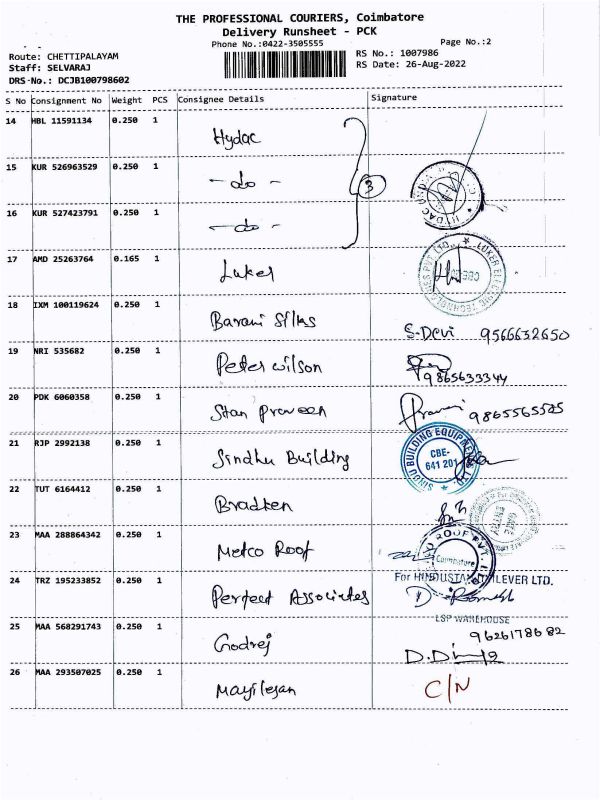 THE PROFESSIONAL COURIERS, Coimbatore
Delivery Runsheet - PCK
Phone No.:0422-3505555
Page No.:2
Route: CHETTIPALAYAM
RS No.: 1007986
Staff: SELVARAJ
RS Date: 26-Aug-2022
DRS No.: DCJB100798602
S No Consignment No Weight PCS Consignee Details Signature
14 HBL 11591134 0.250 1 Hydac
15 KUR 526963529 0.250 1 - do - 3
16 KUR 527423791 0.250 1 - do -
17 AMD 25263764 0.165 1 Luker
18 IXM 100119624 0.250 1 Barani Silks S.Devi 9566632650
19 NRI 535682 0.250 1 Peter wilson 9865633344
20 PDK 6060358 0.250 1 Stan Praveen 9865565505
21 RJP 2992138 0.250 1 Sindhu Building
CBE-
641 201
22 TUT 6164412 0.250 1 Bradken
GATE
ENTRY
23 MAA 288864342 0.250 1 Metco Roof
Coimbatore
24 TRZ 195233852 0.250 1 Perfect Associates
For HINDUSTAN UNILEVER LTD.
LSP WAREHOUSE
25 MAA 568291743 0.250 1 Godrej 9626178682
26 MAA 293507025 0.250 1 Mayilesan C/N